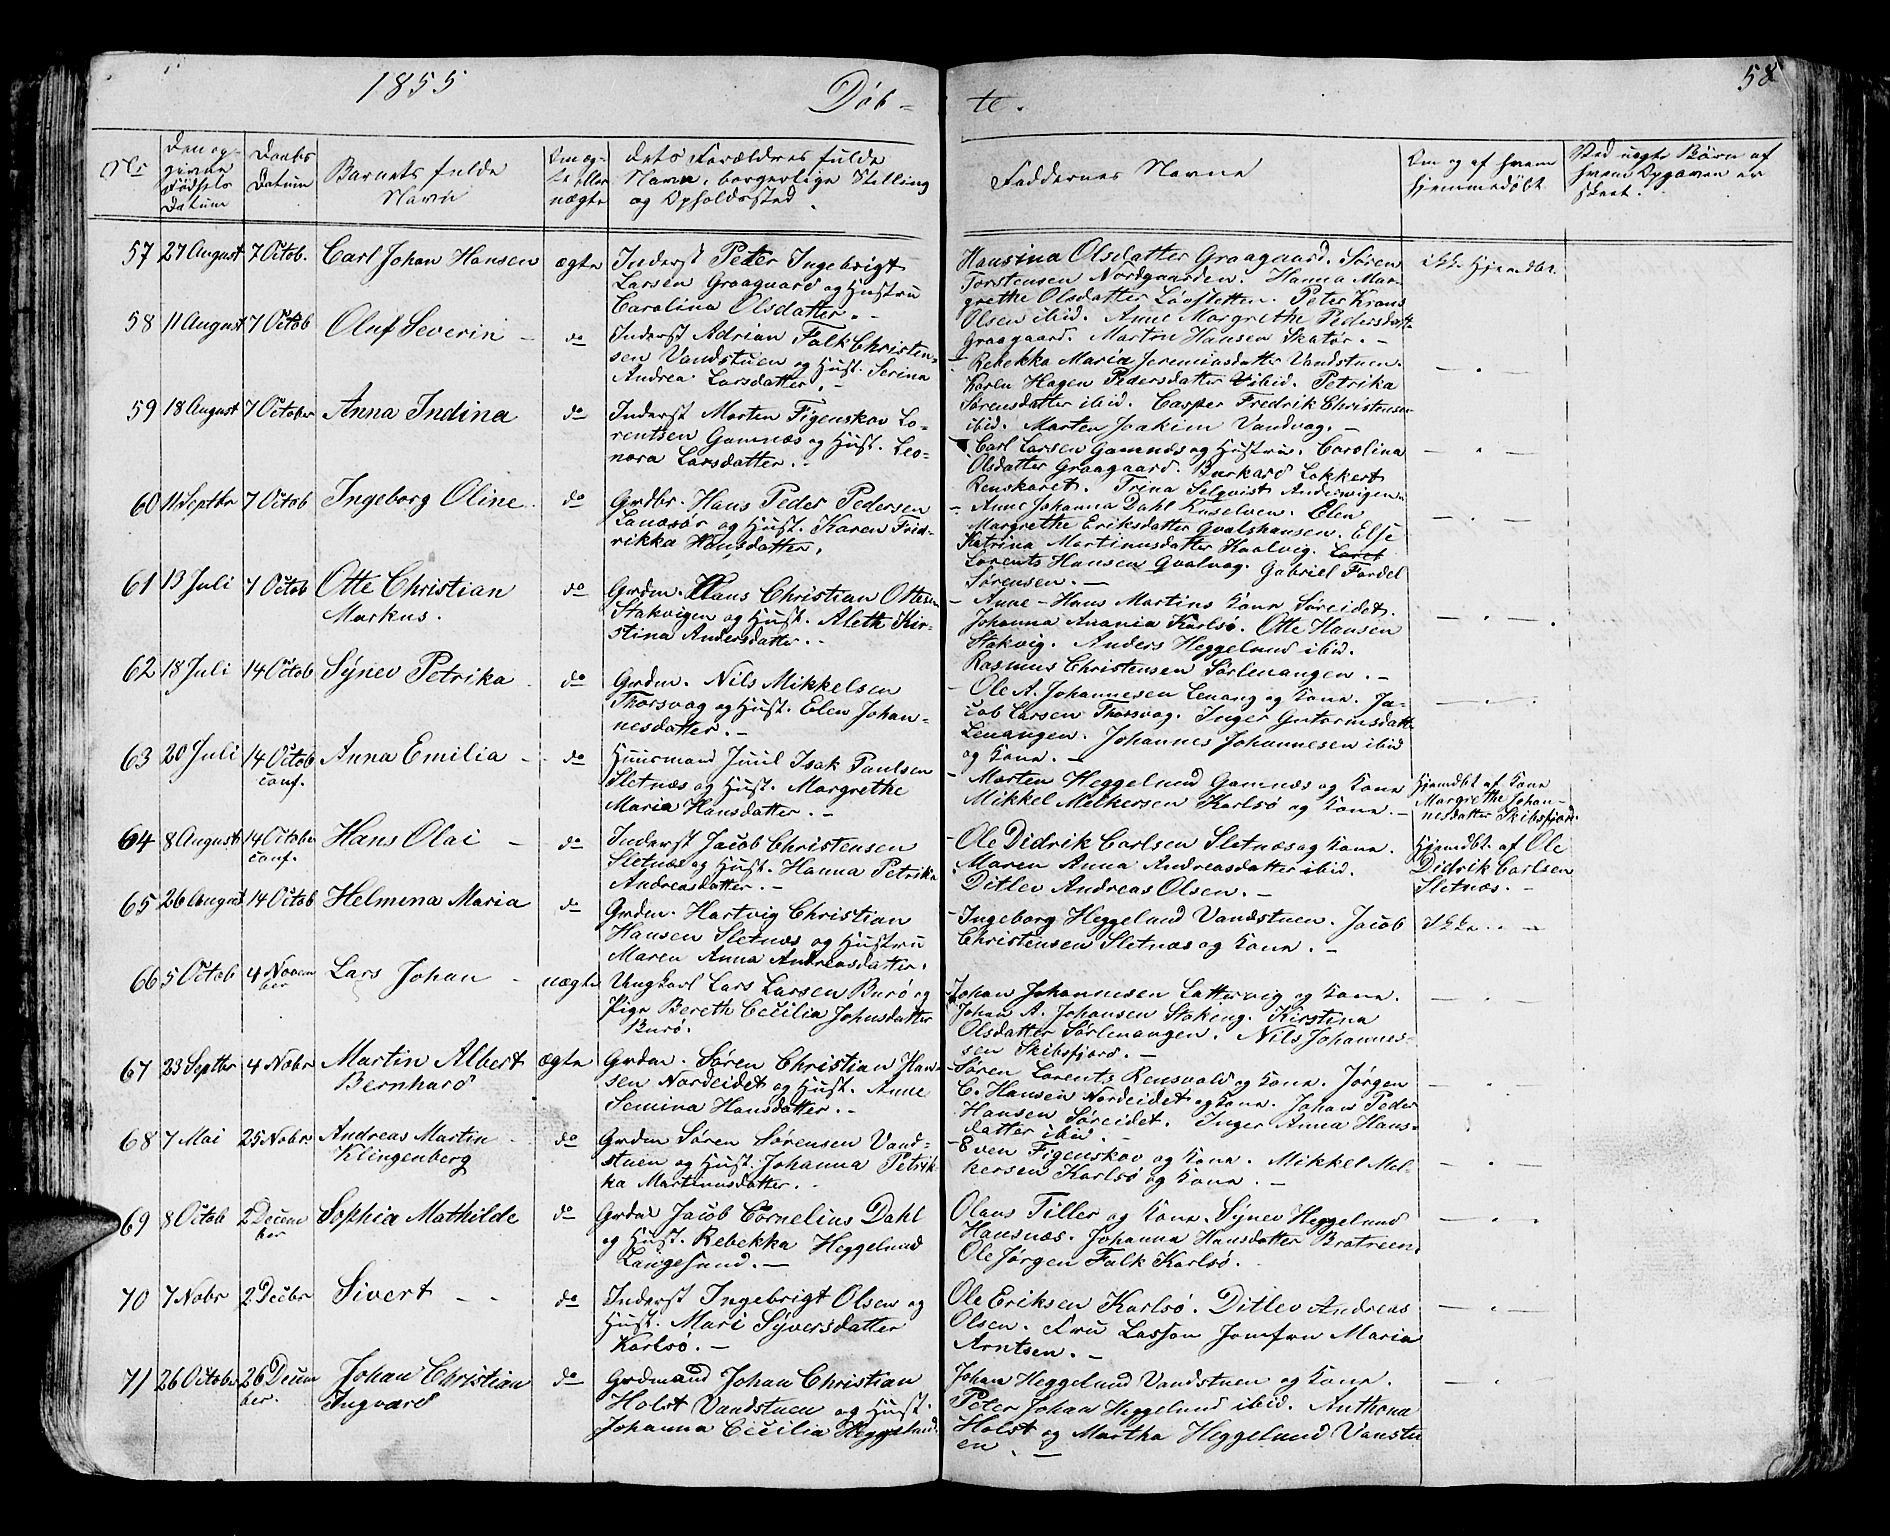 1855
Døb-
te.
58
Nr
Den op-
givne
Fødsels
Datum
Daabs
Datum
Barnets fulde
Navn
Om æg-
te eller
uægte
dets Forældres fulde
Navn, borgerlige Stilling
og Opholdssted.
Faddernes Navne
Om og af hvem
hjemmedøbt
Ved uægte Børn af
hvem Opgaven er
skeet.
57 27 August 7 Octob. Carl Johan Hansen ægte
Inderst Peter Ingebrigt
Larsen Graagaard og Hustru
Carolina Olsdatter. -
Hansina Olsdatter Graagaard. Søren
Torstensen Nordgaarden. Hanna Mar-
grethe Olsdatter Løvstetten. Peter Krans
Olsen ibid. Anne Margrethe Pedersdatt.
Graagaard. Morten Hansen Skatør. -
ikke hjemdbt.
58 11 August 7 Octob Oluf Severin - do
Inderst Adrian Falk Christen-
sen Vandstuen og Hust. Serina
Andrea Larsdatter. -
- Rebekka Maria Jeremiasdatter Vandstuen.
Karen Hagen Pedersdatter ibid. Petrika
Sørensdatter ibid. Casper Fredrik Christensen
ibid. Morten Joakim Vandvag. -
59 18 August 7 October Anna Indina do
Inderst Morten Figenskov Lo-
rentsen Gamnæs og Hust. Leo-
nora Larsdatter. -
Carl Larsen Gamnæs og Hustru. Carolina
Olsdatter Graagaard. Burkard Lokkert
Renskaret. Trina Selqvist
60 11 Septbr 7 Octob Ingeborg Oline. do
Grdbr. Hans Peder Pedersen
og Hust. Karen Frid-
rikka Hansdatter.
- Anne Johanna Dahl. Elen
Margrethe Eriksdatter Gvalshausen. Else
Katrina Martinusdatter Kaalvig.
Lorents Hansen Gvalvag. Gabriel Fardal
Sørensen. -
61 13 Juli 7 Octob Otte Christian
Markus. do
Grdm. Hans Christian Ottesen
Stakvigen og Hust. Aleth Kir-
stina Andersdatter. -
- Anne - Hans Martins Kone Søreidet.
Johanna Anania Karlsø. Otte Hansen
Stakvig. Anders Heggelund ibid.
Rasmus Christensen Sørlenangen. -
62 18 Juli 14 Octob Synev Petrika. do
Grdm. Nils Mikkelsen
Thorsvag og Hust. Elen Johan-
nesdatter. -
- Ole A. Johannesen Lenang og Kone. Ja-
cob Larsen Thorsvag. Inger Gutormsdatt.
Lenangen. Johannes Johannesen ibid
og Kone. -
63 20 Juli 14 Octob
conf. Anna Emilia - do
Huusmand Juul Isak Paulsen
Sletnæs og Hust. Margrethe
Maria Hansdatter. -
- Morten Heggelund Gamnæs og Kone
Mikkel Melkersen Karlsø og Kone. -
Hjemdbt af Kone
Margrethe Johan-
nesdatter Skibsfjord.
64 8 August 14 October
conf. Hans Olai - do
Inderst Jacob Christensen
Sletnæs og Hust. Hanna Petrika
Andreasdatter. -
- Ole Didrik Carlsen Sletnæs og Kone.
Maren Anna Andreasdatter ibid.
Ditlev Andreas Olsen. -
Hjemdbt. af Ole
Didrik Carlsen
Sletnæs. -
65 26 August 14 Octob Helmina Maria do
Grdm. Hartvig Christian
Hansen Sletnæs og Hustru
Maren Anna Andreasdatter.
- Ingeborg Heggelund Vandstuen. Jacob
Christensen Sletnæs og Kone. -
ikke. -
66 5 Octob 4 Novem
ber Lars Johan - uægte
Ungkarl Lars Larsen Burø og
Pige Bereth Cecilia Johnsdatter
Burø.
Johan Johannesen Lattervig og Kone.
Johan A. Johansen Stakeng. Kirstina
Olsdatter Sørlenangen. Nils Johannes-
sen Skibsfjord. -
67 23 Septbr 4 Nobr Martin Albert
Bernhard ægte
Grdm. Søren Christian Han-
sen Nordeidet og Hust. Anne
Semina Hansdatter. -
- Søren Lorents Rensvold og Kone. Jørgen
C. Hansen Nordeidet og Kone. Johan Peder
Hansen Søreidet. Inger Anna Hans-
datter ibid. -
68 7 Mai 25 Nobr Andreas Martin
Klingenberg do
Grdm Søren Sørensen Vand-
stuen og Hust. Johanna Petrik-
ka Martinusdatter. -
- Even Figenskov og Kone. Mikkel Mel-
kersen Karlsø og Kone. -
69 8 Octob 2 Decem
ber Sophia Mathilde do
Grdm Jacob Cornelius Dahl
og Hust. Rebekka Heggelund
Langesund. -
Olaus Tiller og Kone. Synev Heggelund
Hansnæs. Johanna Hansdatter Bratreen.
Ole Jørgen Falk Karlsø.
70 7 Nobr 2 Decbr Sivert - - do
Inderst Ingebrigt Olsen og
Hust. Mari Syversdatter
Karlsø. -
Ole Eriksen Karlsø. Ditlev Andreas
Olsen. Fru Lasson Jomfru Maria
Arntsen. -
71 26 Octobr 26 Decem
ber. Johan Christian
Ingvard do
Grdmand Johan Christian
Holst Vandstuen og Hust.
Johanna Cecilia Heggelund.
Johan Heggelund Vandstuen og Kone.
Peter Johan Heggelund ibid. Anthona
Holst og Martha Heggelund Vanstu
en. -